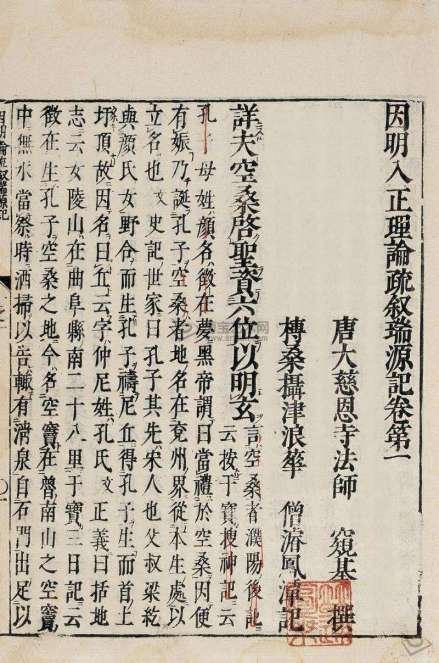 因明入正理論疏叙瑞源記卷第一
唐大慈恩寺法師　窺基　撰
榑桑攝津浪華　僧濬鳳潭記
詳夫空桑啓聖資六位以明玄言空桑者濮陽後記
云按干寶搜神記云
孔子母姓顏名徵在夢黑帝謂曰當禮於空桑因便
有娠乃誕孔子空桑者地名在兗州界從本生處以
立名也文史記世家曰孔子其先宋人也父叔梁紇
與顏氏女野合而生孔子禱尼丘得孔子生而首上
圩頂故因名曰丘云字仲尼姓孔氏文正義曰括地
志云女陵山在曲阜縣南二十八里干寶三日記云
徵在生孔子空桑之地今名空竇在魯南山之空竇
中無水當祭時洒掃以告輒有清泉自石門出足以
因明論疏叙瑞源記